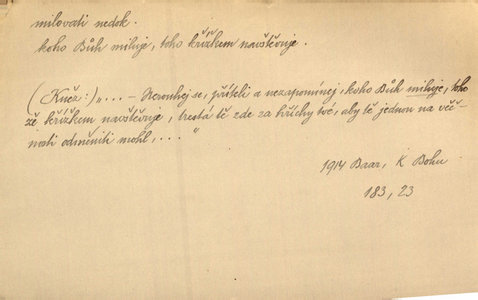 milovati nedok.
koho Bůh miluje, toho křížkem navštěvuje.
(Kněz:) „... – Nerouhej se, příteli a nezapomínej, koho Bůh miluje, toho
že křížkem navštěvuje, trestá tě zde za hříchy tvé, aby tě jednou na věč-
nosti odměniti mohl, ... "
1914 Baar, K Bohu
183, 23